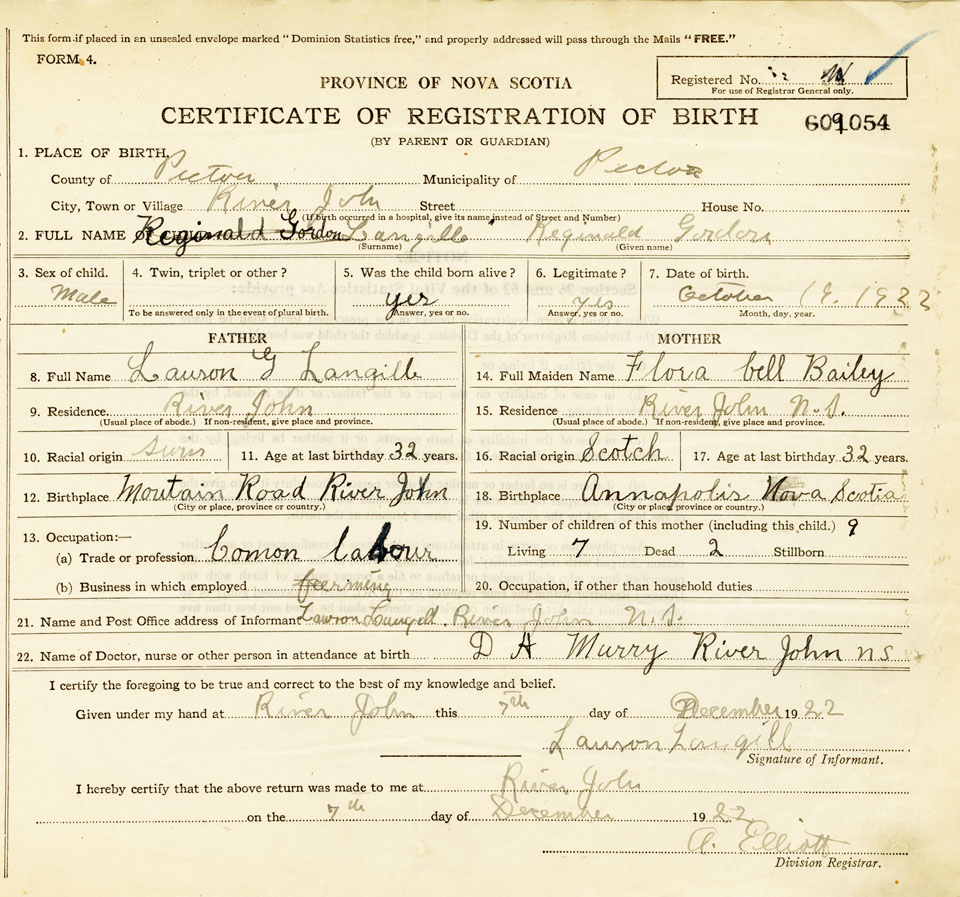 This form if placed in an unsealed envelope marked "Dominion Statistics free," and properly addressed will pass through the Mails "FREE."
FORM 4.
Registered No.
For use of Registrar General only.
PROVINCE OF NOVA SCOTIA
CERTIFICATE OF REGISTRATION OF BIRTH
(BY PARENT OR GUARDIAN)
1. PLACE OF BIRTH,
County of Pictou Municipality of Pictou
City, Town or Village River John Street House No.
(If birth occurred in a hospital, give its name instead of Street and Number)
2. FULL NAME Reginald Gordon Langille Reginald Gordon
(Surname) (Given name)
3. Sex of child. 4. Twin, triplet or other? 5. Was the child born alive? 6. Legitimate? 7. Date of birth.
Male yes yes October 19. 1922
To be answered only in the event of plural birth. Answer, yes or no. Answer, yes or no. Month, day, year.
FATHER MOTHER
8. Full Name Lawson G Langille 14. Full Maiden Name Flora bell Bailey
9. Residence River John 15. Residence River John N.S.
(Usual place of abode.) If non-resident, give place and province. (Usual place of abode.) If non-resident, give place and province.
10. Racial origin Swiss 11. Age at last birthday 32 years. 16. Racial origin Scotch 17. Age at last birthday 32 years.
12. Birthplace Moutain Road River John 18. Birthplace Annapolis Nova Scotia
(City or place, province or country.) (City or place, province or country.)
13. Occupation:— 19. Number of children of this mother (including this child.) 9
(a) Trade or profession Comon labour Living 7 Dead 2 Stillborn
(b) Business in which employed ferming 20. Occupation, if other than household duties
21. Name and Post Office address of Informant Lawson Langill. River John N.S.
22. Name of Doctor, nurse or other person in attendance at birth D A Murry River John ns
I certify the foregoing to be true and correct to the best of my knowledge and belief.
Given under my hand at River John this 7th day of December 1922
Lawson Langill
Signature of Informant.
I hereby certify that the above return was made to me at River John
on the 7th day of December 1922
A. Elliott
Division Registrar.